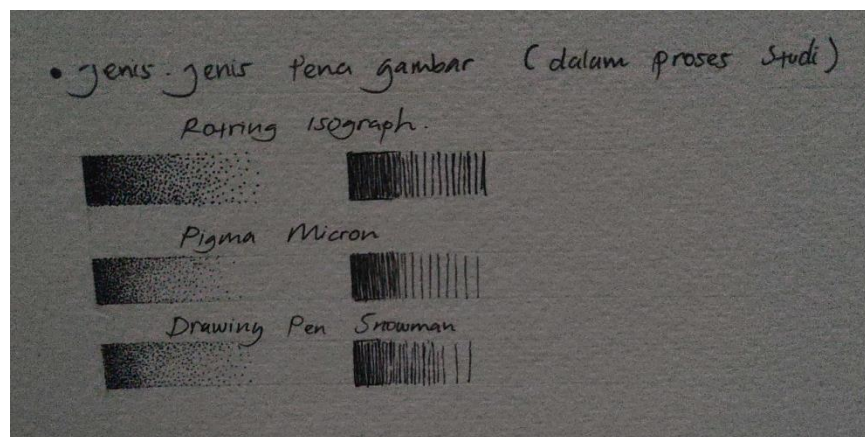 • Jenis-Jenis Pena gambar (dalam proses studi)
Rotring Isograph.
Pigma Micron
Drawing Pen Snowman